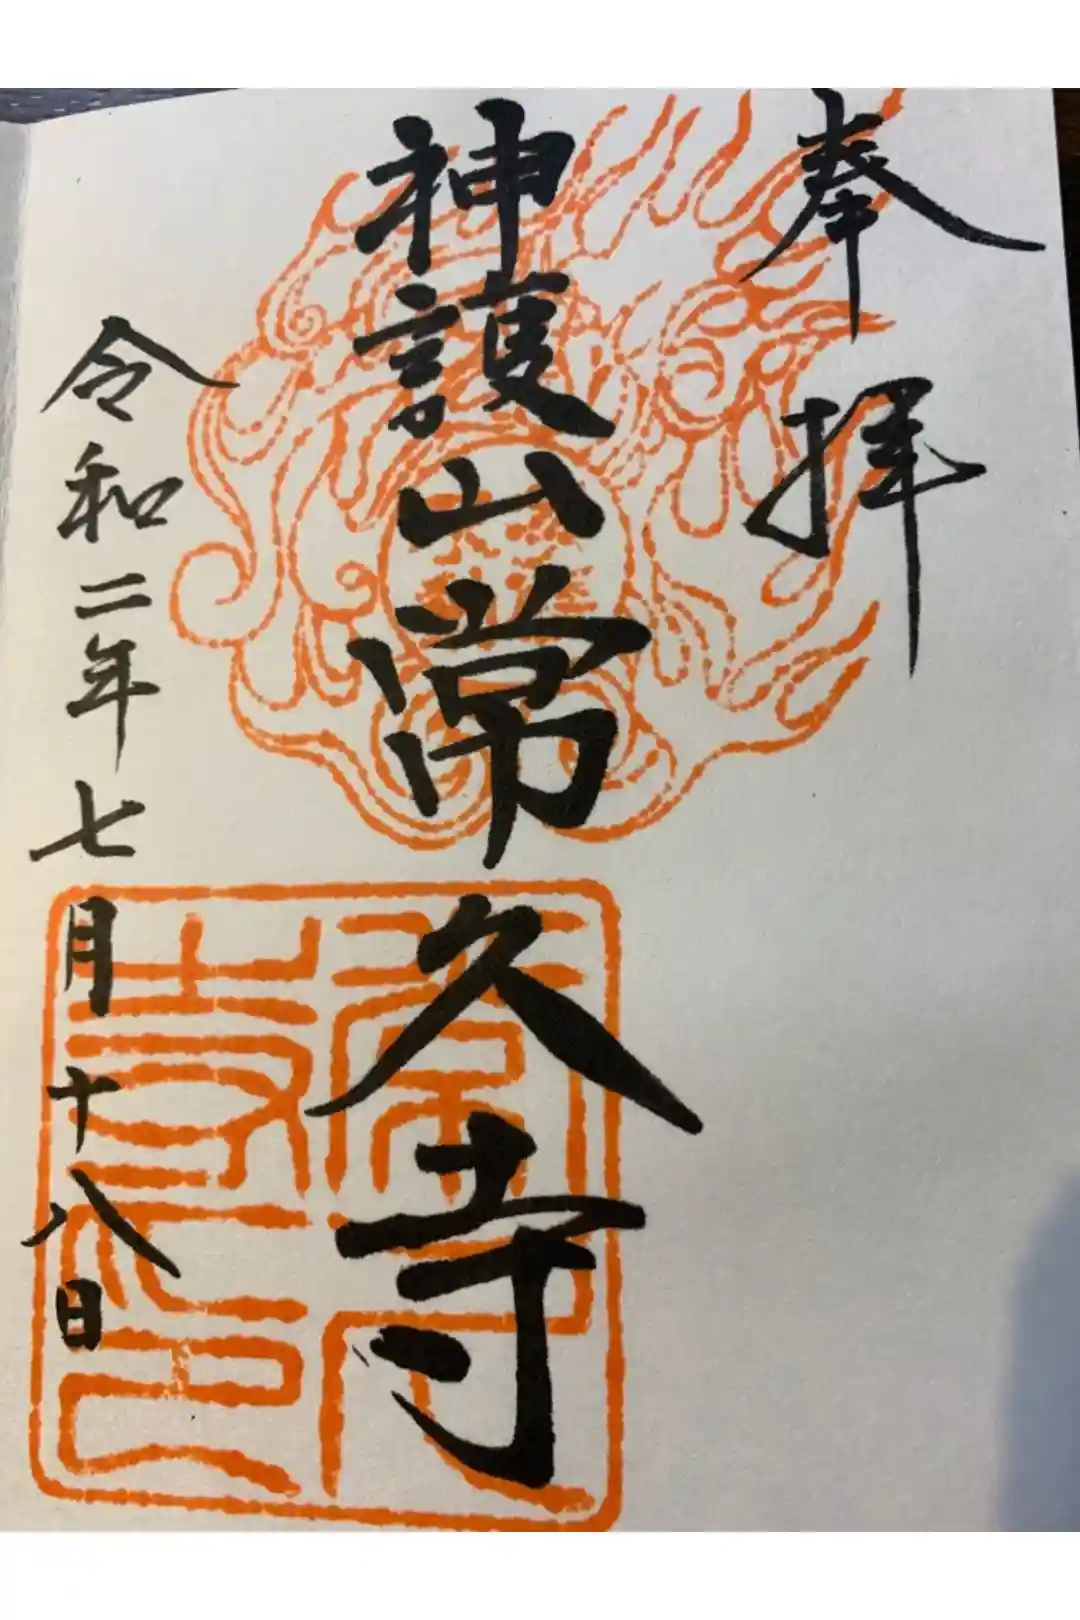 奉拝
神護山常久寺
令和二年七月十八日
常久寺印